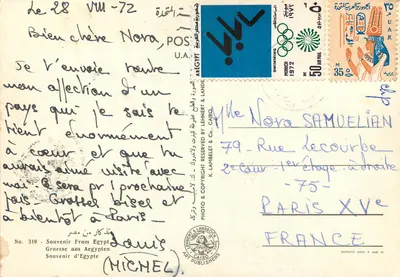 Le 28 VIII-72
Bien chère Nora,
Je t'envoie toute
mon affection d'un
pays que je sais te
tient énormément
à cœur et que tu
aurais aimé visité avec
moi. Ce sera pr l'prochaine
fois. Grosses bises et
à bientôt à Paris
Louis
(MICHEL)
No. 319 - Souvenir From Egypt
Gruesse aus Aegypten
Souvenir d'Egypte
POS
U.A.
PHOTO & COPYRIGHT RESERVED BY LEHNERT & LANDROCK
K. LAMBELET & Co. CAIRO
EGYPT
MUNICH
1972
50
U A R
35
Mlle Nora SAMUELIAN
79 - Rue Lecourbe
2e Cour - 1er étage à droite
- 75 -
PARIS XVe
FRANCE